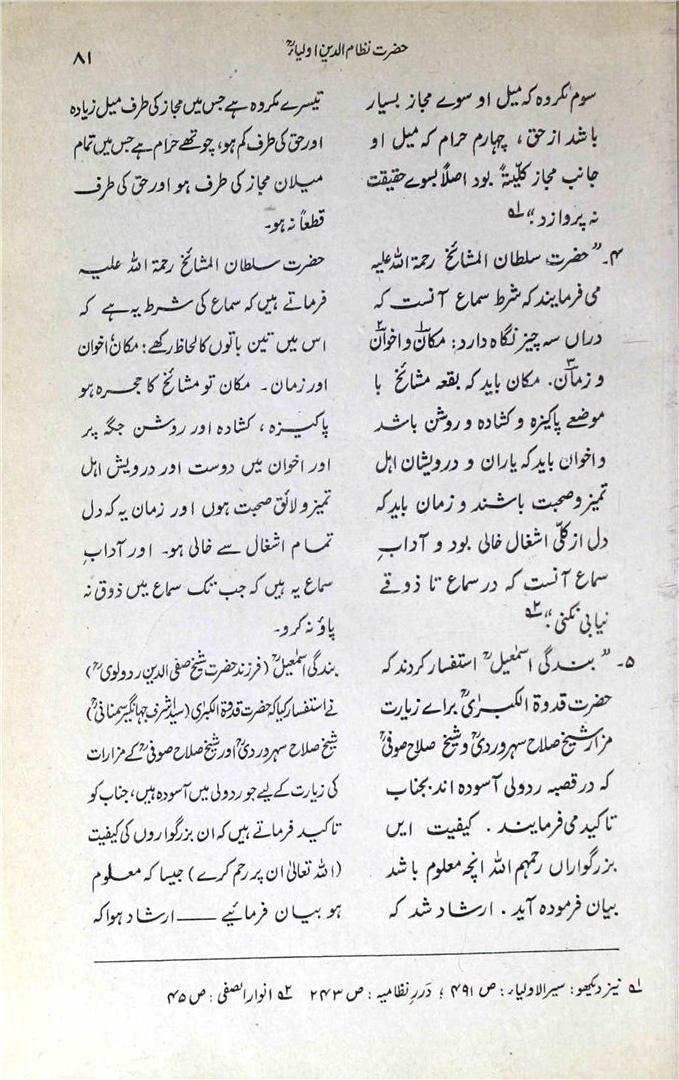 حضرت نظام الدین اولیاءؒ
۸۱
سوم مکروہ کہ میل او سوے مجاز بسیار
باشد از حق ، چہارم حرام کہ میل او
جانب مجاز کلیّتہً بود اصلاً بسوے حقیقت
نہ پروازد۔“ ۱؎
۴۔ ”حضرت سلطان المشائخ رحمۃ اللہ علیہ
می فرمایند کہ شرط سماع آنست کہ
دراں سہ چیز نگاہ دارد: مکان۱ و اخوان۲
و زمان۳. مکان باید کہ بقعہ مشائخ با
موضعے پاکیزہ و کشادہ و روشن باشد
و اخوان باید کہ یاران و درویشان اہل
تمیز و صحبت باشند و زمان باید کہ
دل از کلّی اشغال خالی بود و آدابِ
سماع آنست کہ در سماع تا ذوقے
نیابی نکنی۔“ ۲؎
۵۔ ”بندگی اسمٰعیلؒ استفسار کردند کہ
حضرت قدوۃ الکبریٰؒ براے زیارت
مزار شیخ صلاح سہروردیؒ و شیخ صلاح صوفیؒ
کہ در قصبہ ردولی آسودہ اند بجناب
تاکید می فرمایند . کیفیت ایں
بزرگواراں رحمہم اللہ انچہ معلوم باشد
بیان فرمودہ آید . ارشاد شد کہ
تیسرے مکروہ ہے جس میں مجاز کی طرف میل زیادہ
اور حق کی طرف کم ہو، چوتھے حرام ہے جس میں تمام
میلان مجاز کی طرف ہو اور حق کی طرف
قطعاً نہ ہو۔
حضرت سلطان المشائخ رحمۃ اللہ علیہ
فرماتے ہیں کہ سماع کی شرط یہ ہے کہ
اس میں تین باتوں کا لحاظ رکھے: مکان، اخوان
اور زمان۔ مکان تو مشائخ کا حجرہ ہو
پاکیزہ ، کشادہ اور روشن جگہ پر
اور اخوان میں دوست اور درویش اہل
تمیز و لائق صحبت ہوں اور زمان یہ کہ دل
تمام اشغال سے خالی ہو۔ اور آدابِ
سماع یہ ہیں کہ جب تک سماع میں ذوق نہ
پاؤ نہ کرو۔
بندگی اسمٰعیلؒ (فرزند حضرت شیخ صفی الدین ردولویؒ)
نے استفسار کیا کہ حضرت قدوۃ الکبریٰ (سید اشرف جہانگیر سمنانیؒ)
شیخ صلاح سہروردیؒ اور شیخ صلاح صوفیؒ کے مزارات
کی زیارت کے لیے جو ردولی میں آسودہ ہیں، جناب کو
تاکید فرماتے ہیں کہ ان بزرگواروں کی کیفیت
(اللہ تعالیٰ ان پر رحم کرے) جیسا کہ معلوم
ہو بیان فرمائیے —— ارشاد ہوا کہ
۱؎ نیز دیکھو: سیر الاولیاء: ص ۴۹۱ ؛ دُررِ نظامیہ: ص ۲۴۳ ۲؎ انوار الصفی: ص ۴۵